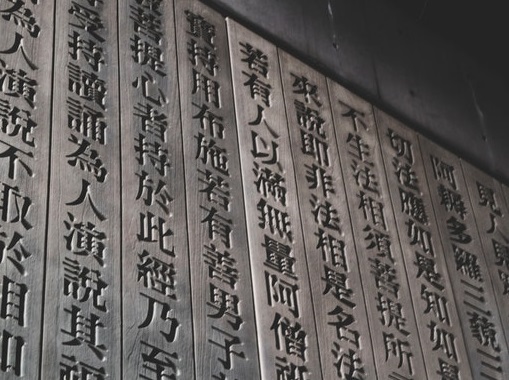 見人見
阿耨多羅三藐三
切法應如是知如是
不生法相須菩提所
來說即非法相是名法
若有人以滿無量阿僧祇
寶持用布施若有善男子
菩提心者持於此經乃至
受持讀誦為人演說其
為人演說不取於相如